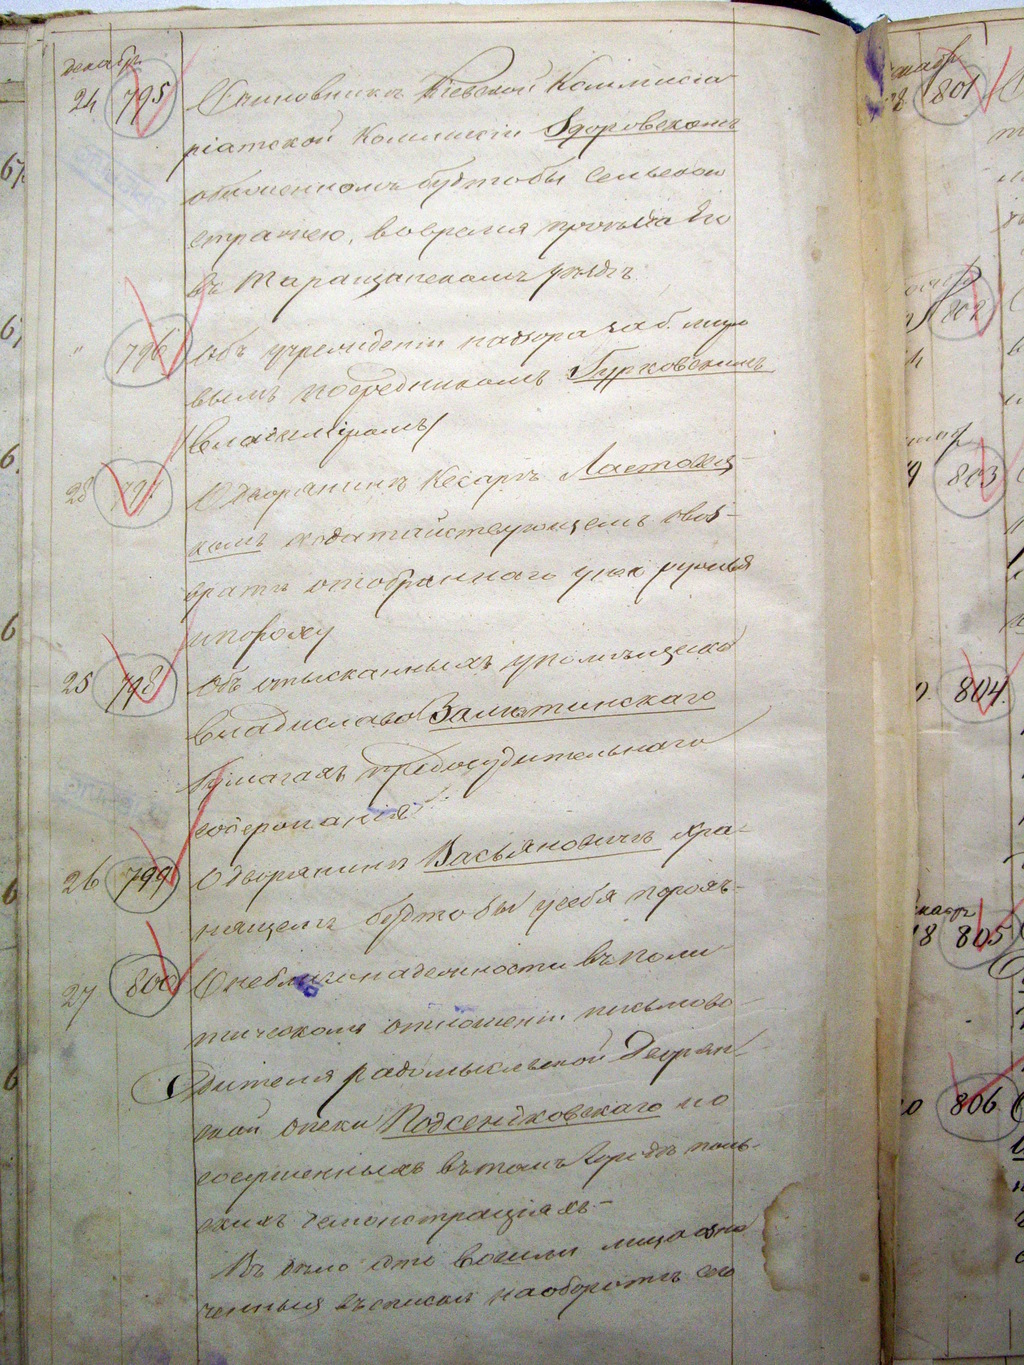 декабр.
24 795 О чиновникѣ Кіевской Коммиса
ріатской Коммисіи Здоровскомъ
обиженномъ будто бы сельскою
стражею, во время проѣзда его
въ Таращанскомъ уѣздѣ
" 796 Объ учрежденіи надзора за б. миро
вымъ посредникомъ Гурковскимъ
/Владиміромъ/
25 797 О дворянинѣ Кесарѣ Ластовец
комъ ходатайствующемъ о воз-
вратѣ отобраннаго у него ружья
и пороху
25 798 Объ отысканныхъ у помѣщика
Владислава Залютинскаго
бумагахъ предосудительнаго
содержанія
26 799 О дворянинѣ Васьяновичѣ хра-
нящемъ будто бы у себя порохъ-
27 800 О неблагонадежности въ поли
тическомъ отношеніи письмово-
дителя радомысльской Дворян
ской опеки Подсендковскаго и о
совершенныхъ въ томъ городѣ поль-
скихъ демонстраціяхъ-
Въ дѣло это вошли лица озна
ченныя въ спискѣ на оборотѣ сего
декабр
801
802
803
804.
декабр
18 805
806